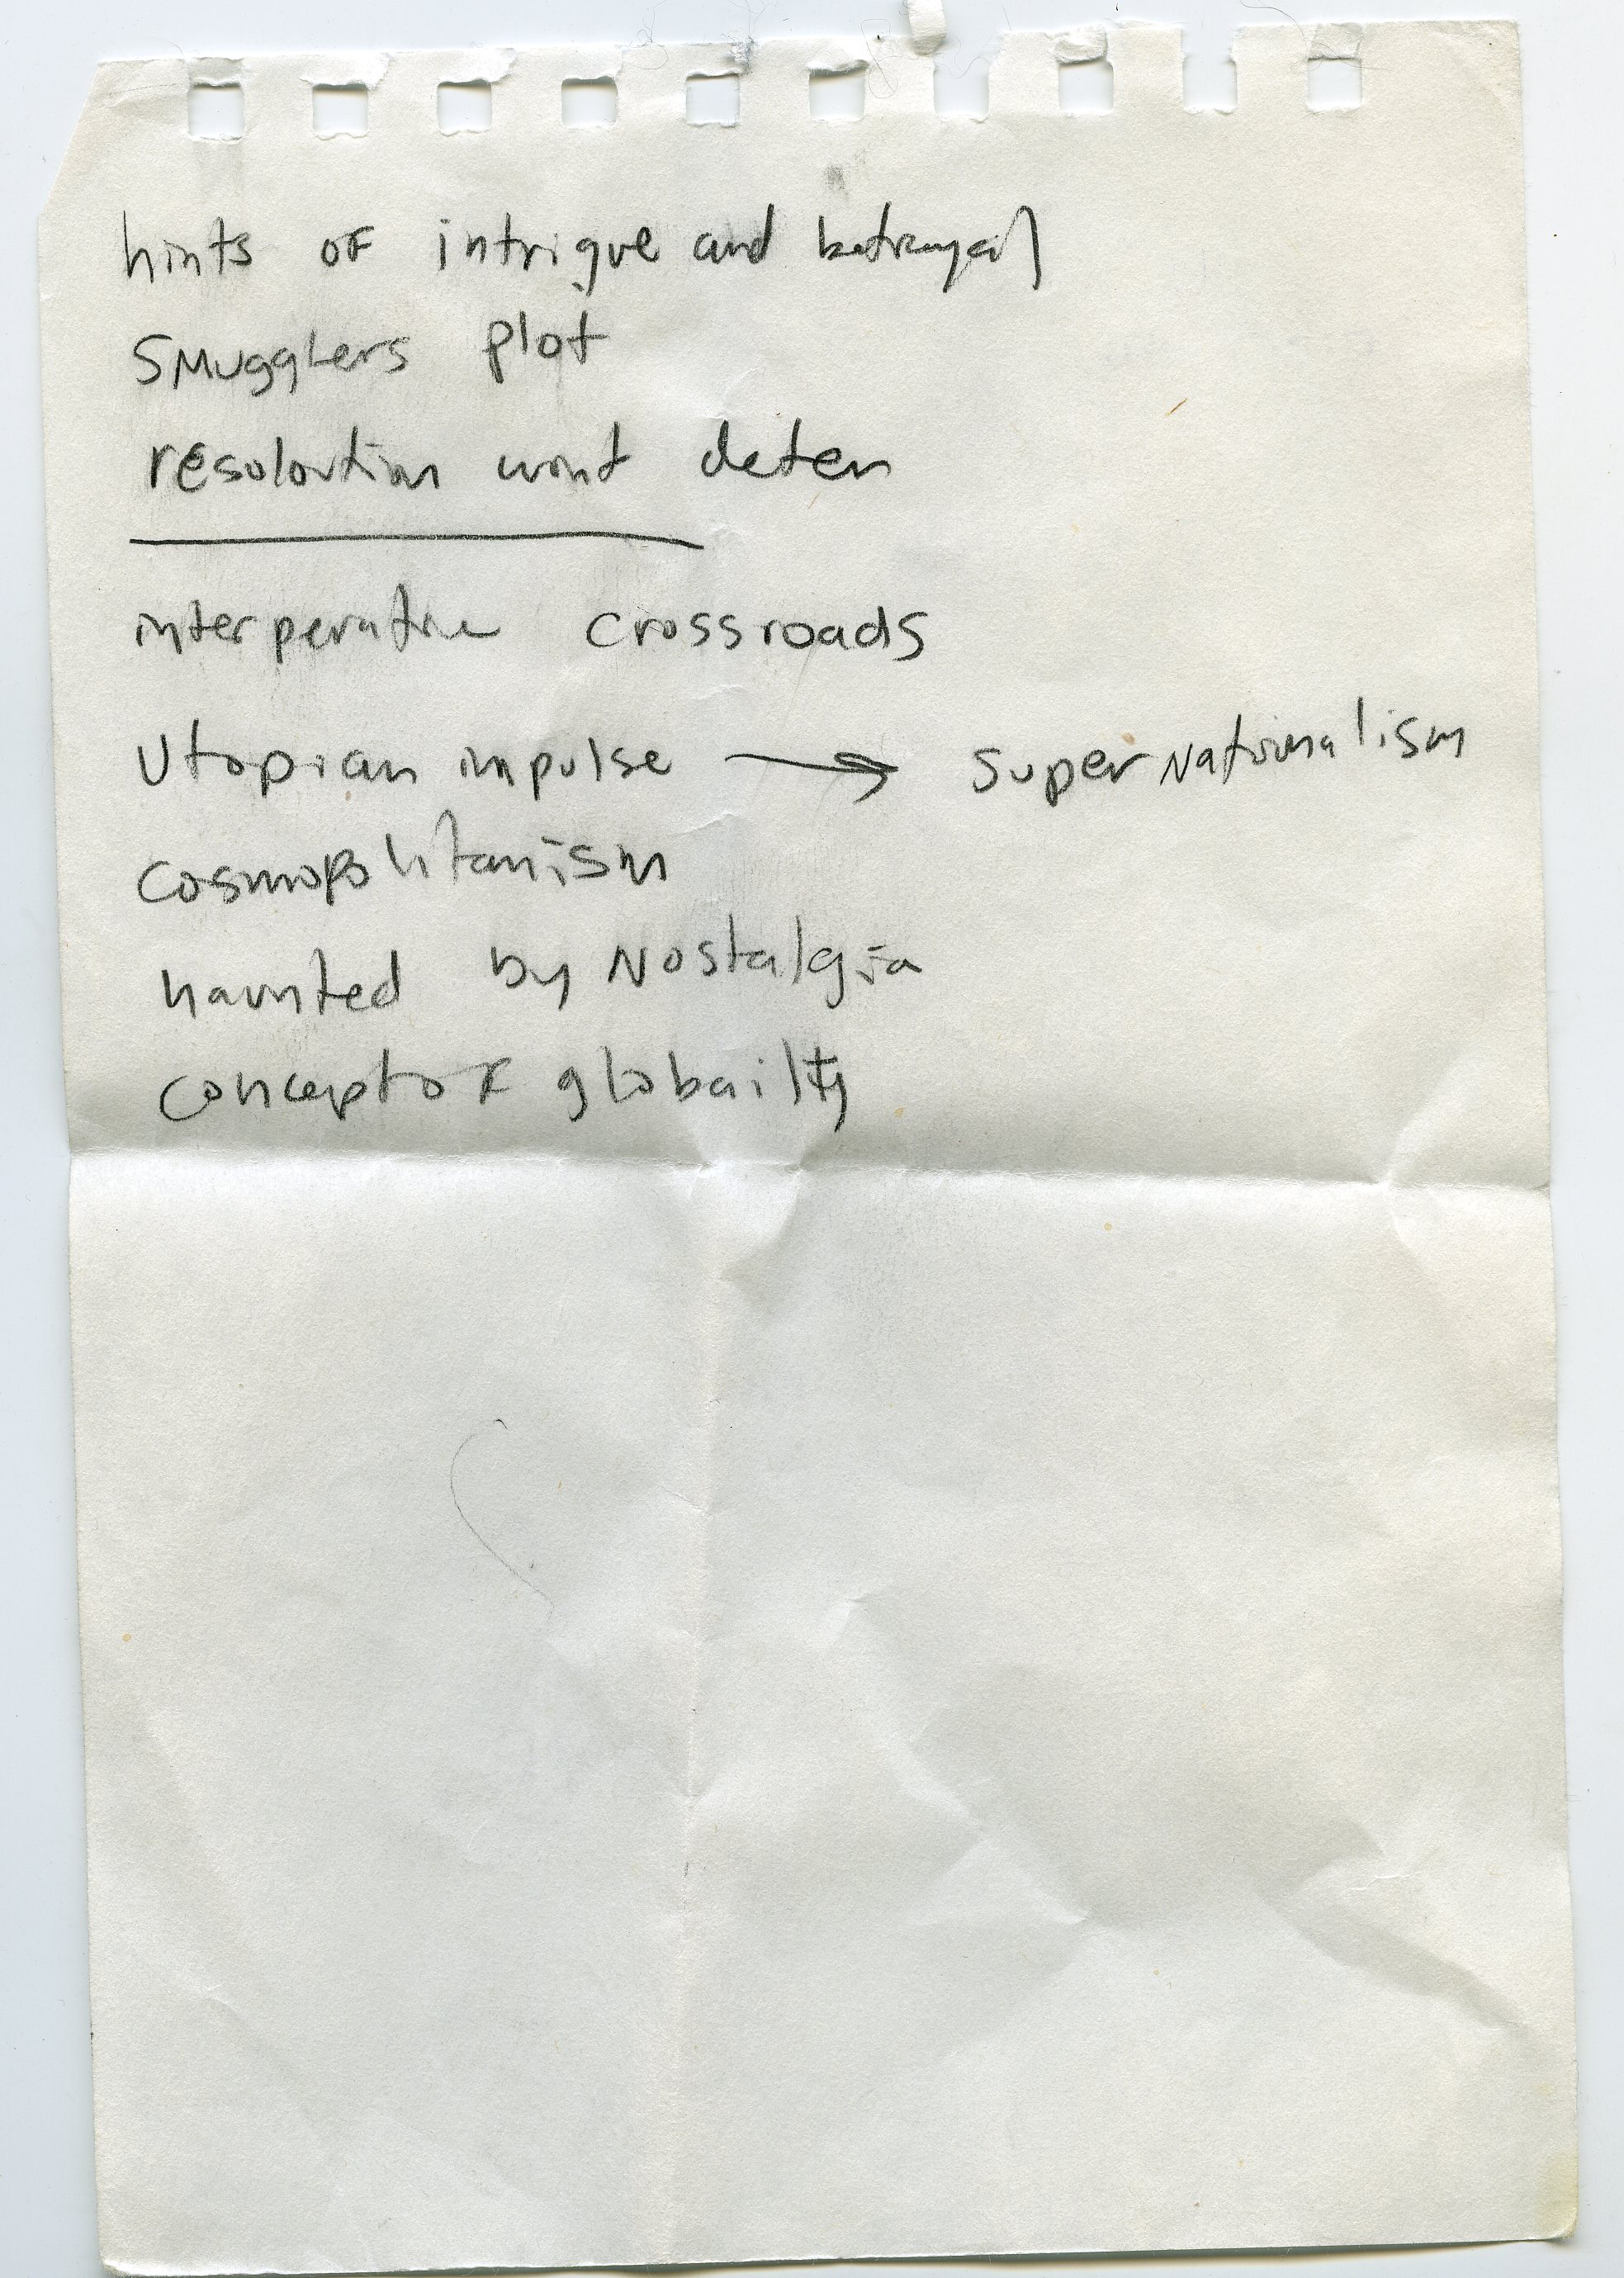 hints of intrigue and betrayal
Smugglers plot
resolution wont deter
interperative crossroads
Utopian impulse → super Nationalism
Cosmopolitanism
haunted by Nostalgia
Concept of globailty